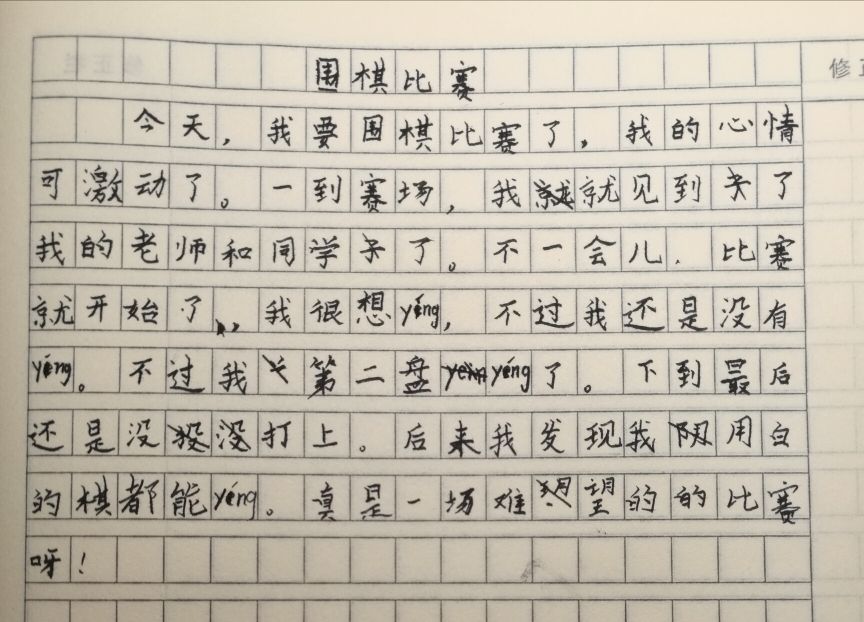 围棋比赛
今天，我要围棋比赛了，我的心情
可激动了。一到赛场，我就见到关了
我的老师和同学关了。不一会儿，比赛
就开始了，我很想yéng，不过我还是没有
yéng。不过我第二盘yéng了。下到最后
还是没没打上。后来我发现我用白
的棋都能yéng。真是一场难望的的比赛
呀！
修正